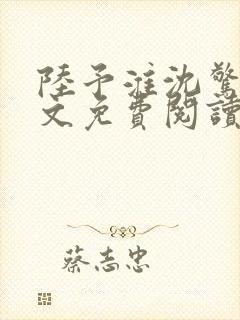 陸予淮沈驚
文免費閱讀
蔡志忠